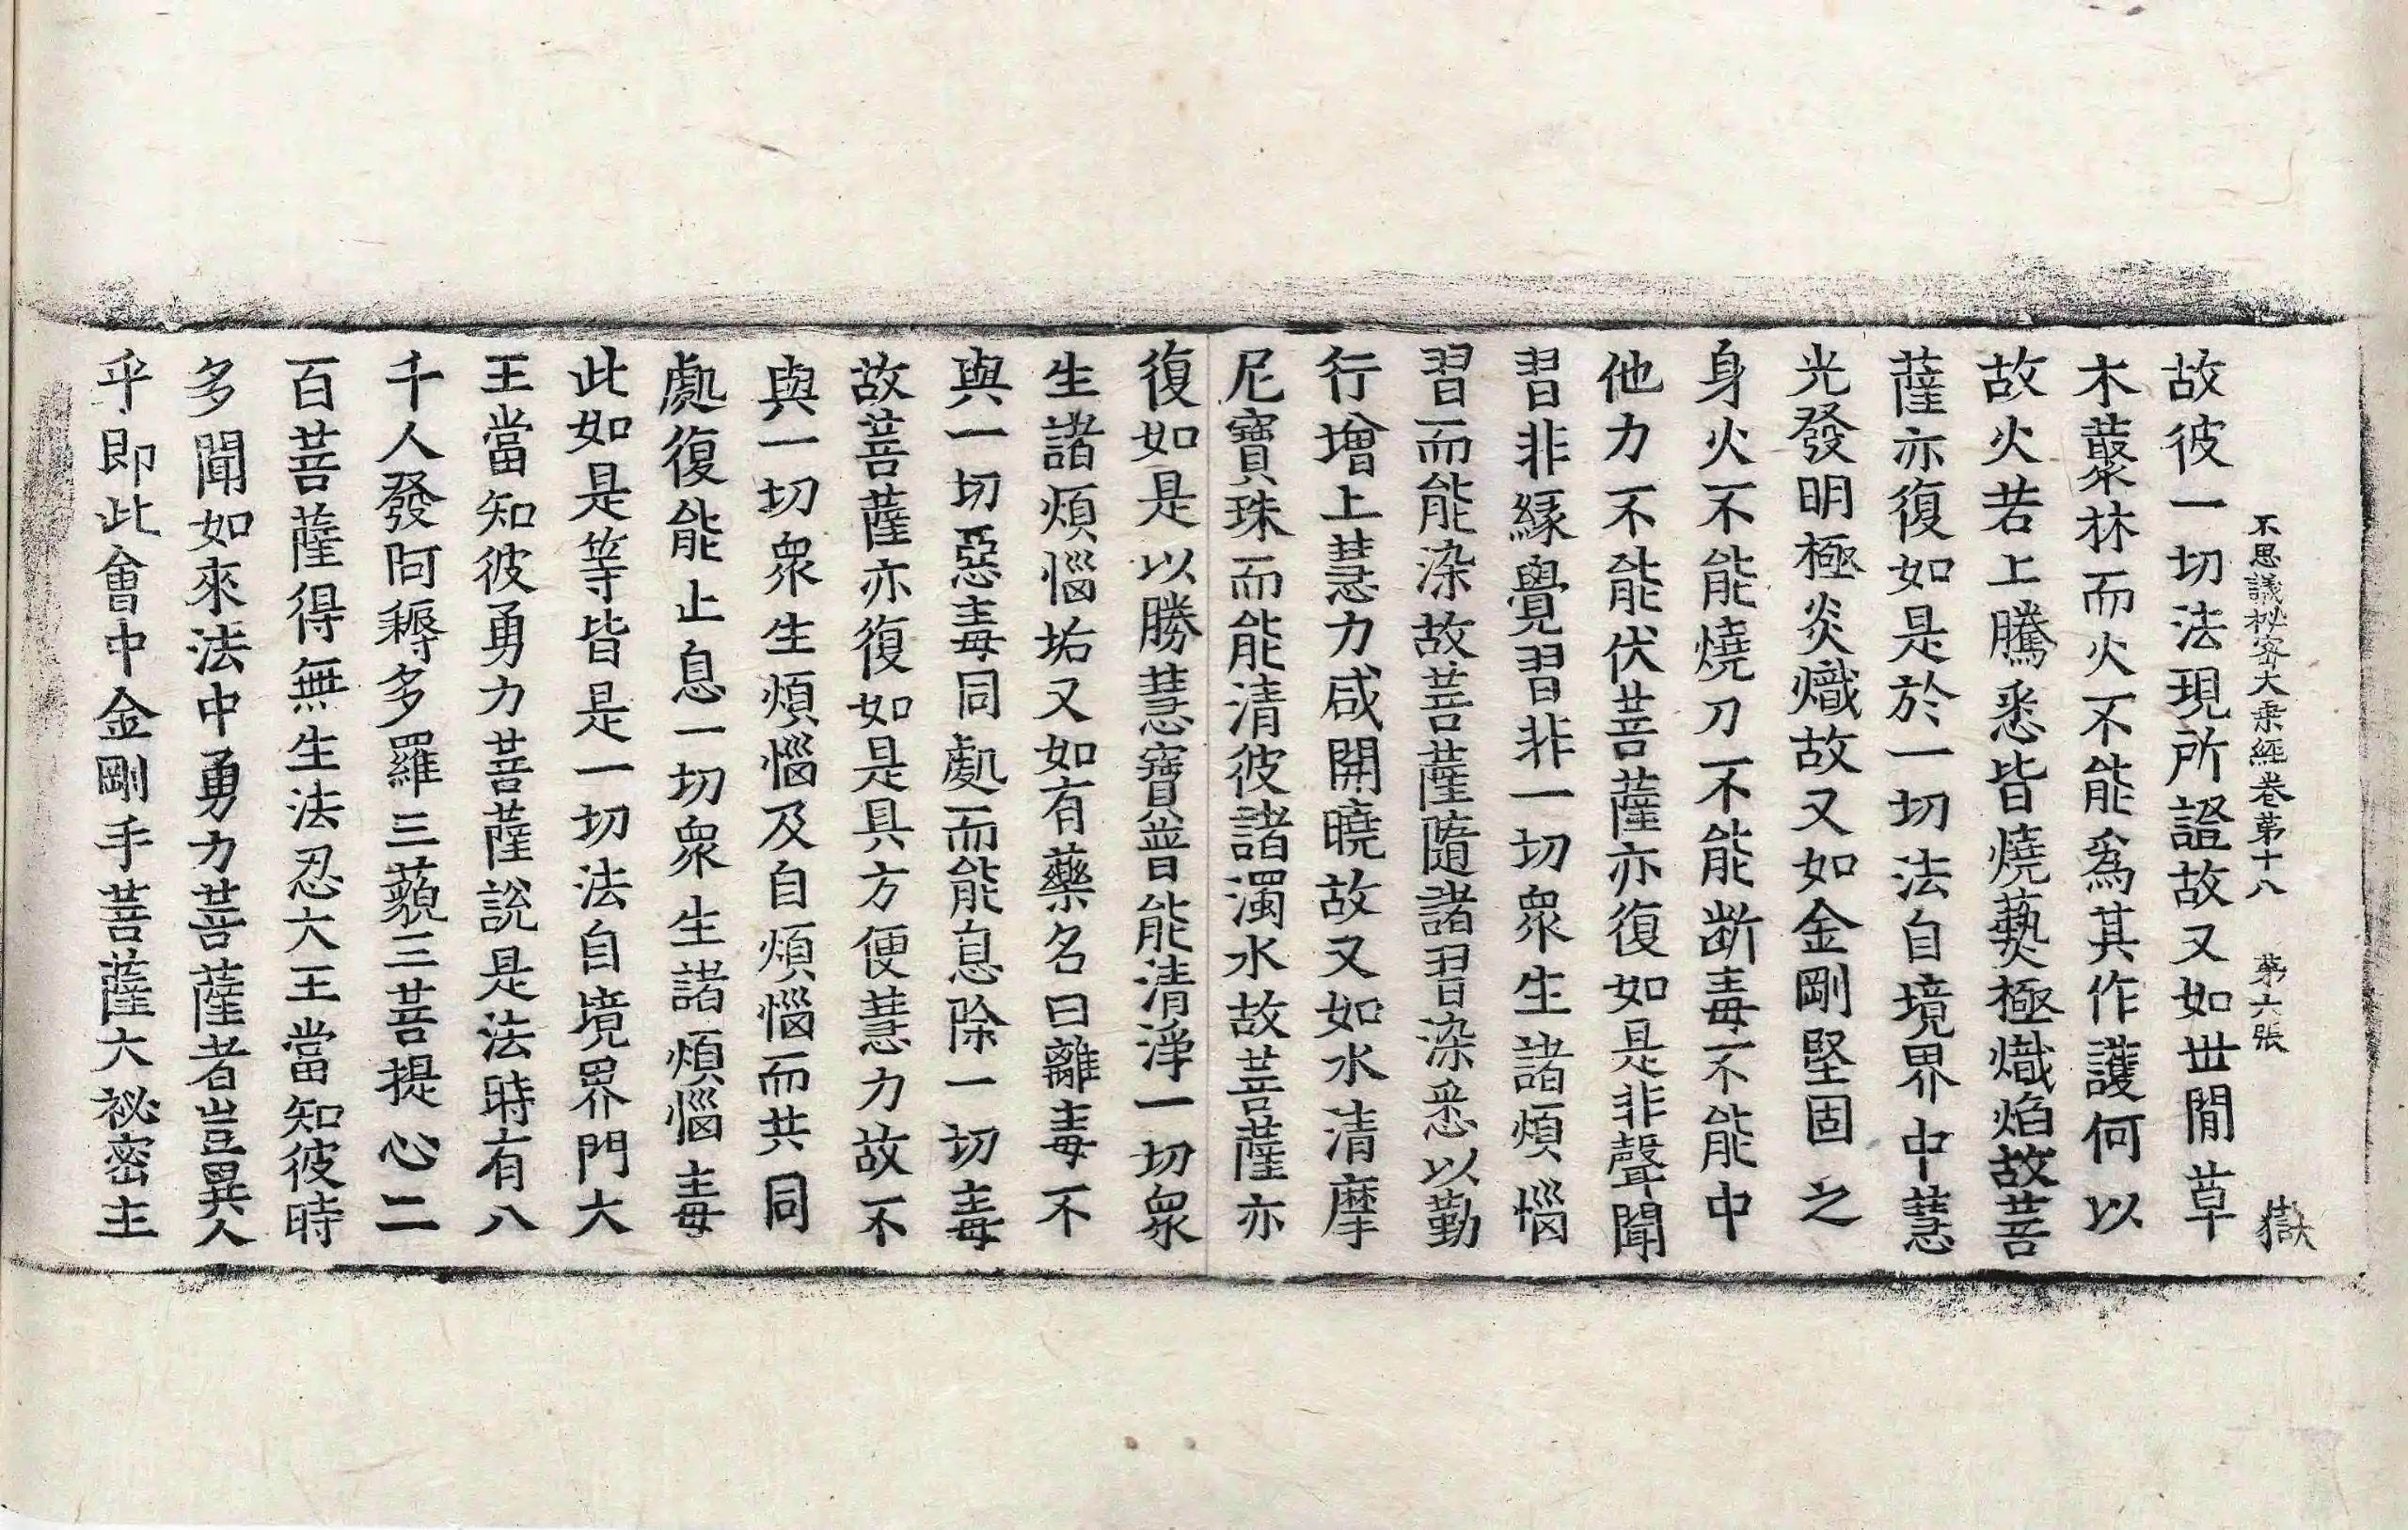 不思議秘密大乗經卷第十八　第六張　獄
故彼一切法現所證故又如世閒草
木叢林而火不能爲其作護何以
故火若上騰悉皆燒爇極熾焰故菩
薩亦復如是於一切法自境界中慧
光發明極炎熾故又如金剛堅固之
身火不能燒刀不能斷毒不能中
他力不能伏菩薩亦復如是非聲聞
習非緣覺習非一切衆生諸煩惱
習而能染故菩薩隨諸習染悉以勤
行增上慧力咸開曉故又如水清摩
尼寶珠而能清彼諸濁水故菩薩亦
復如是以勝慧寶普能清淨一切衆
生諸煩惱垢又如有藥名曰離毒不
與一切惡毒同處而能息除一切毒
故菩薩亦復如是具方便慧力故不
與一切衆生煩惱及自煩惱而共同
處復能止息一切衆生諸煩惱毒
此如是等皆是一切法自境界門大
王當知彼勇力菩薩說是法時有八
千人發阿耨多羅三藐三菩提心二
百菩薩得無生法忍大王當知彼時
多聞如來法中勇力菩薩者豈異人
乎即此會中金剛手菩薩大祕密主